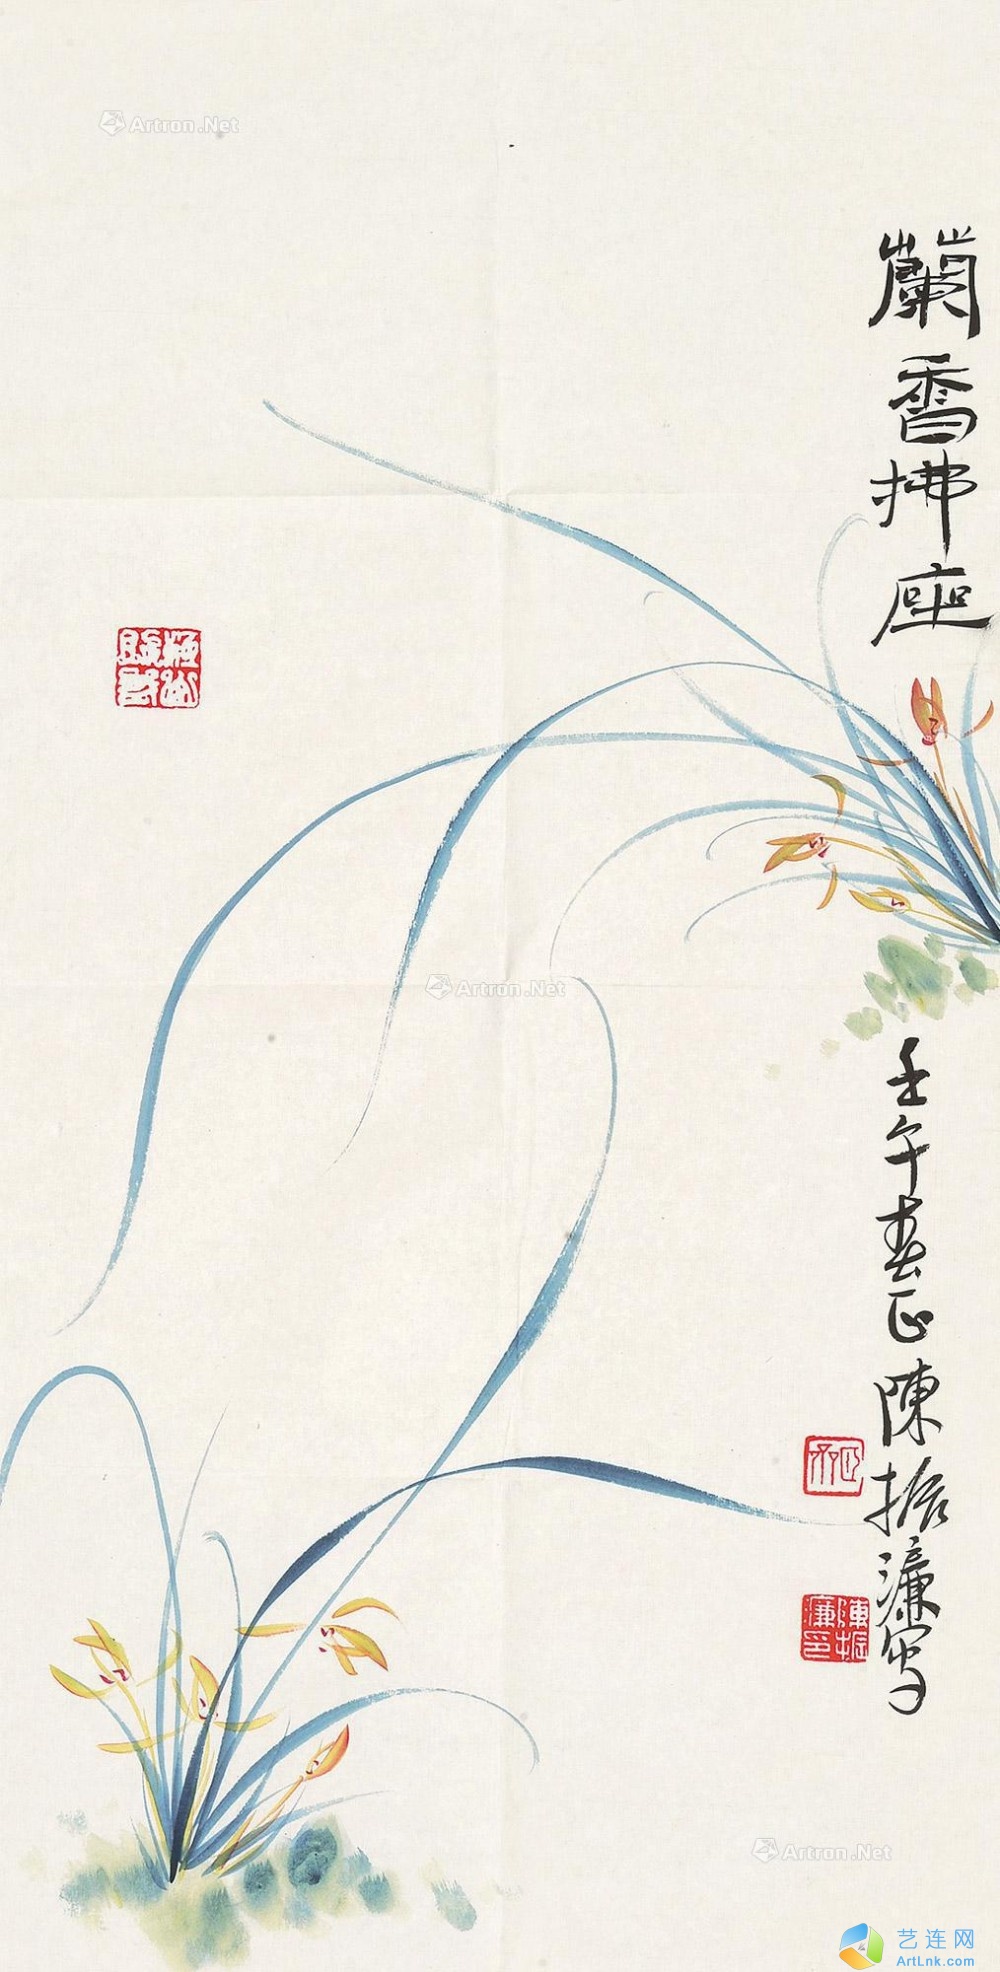 蘭香拂座
壬午春正陳振濂寫
陳振濂印
Artron.Net
Artron.Net
Artron.Net
艺连网
ArtLnk.com